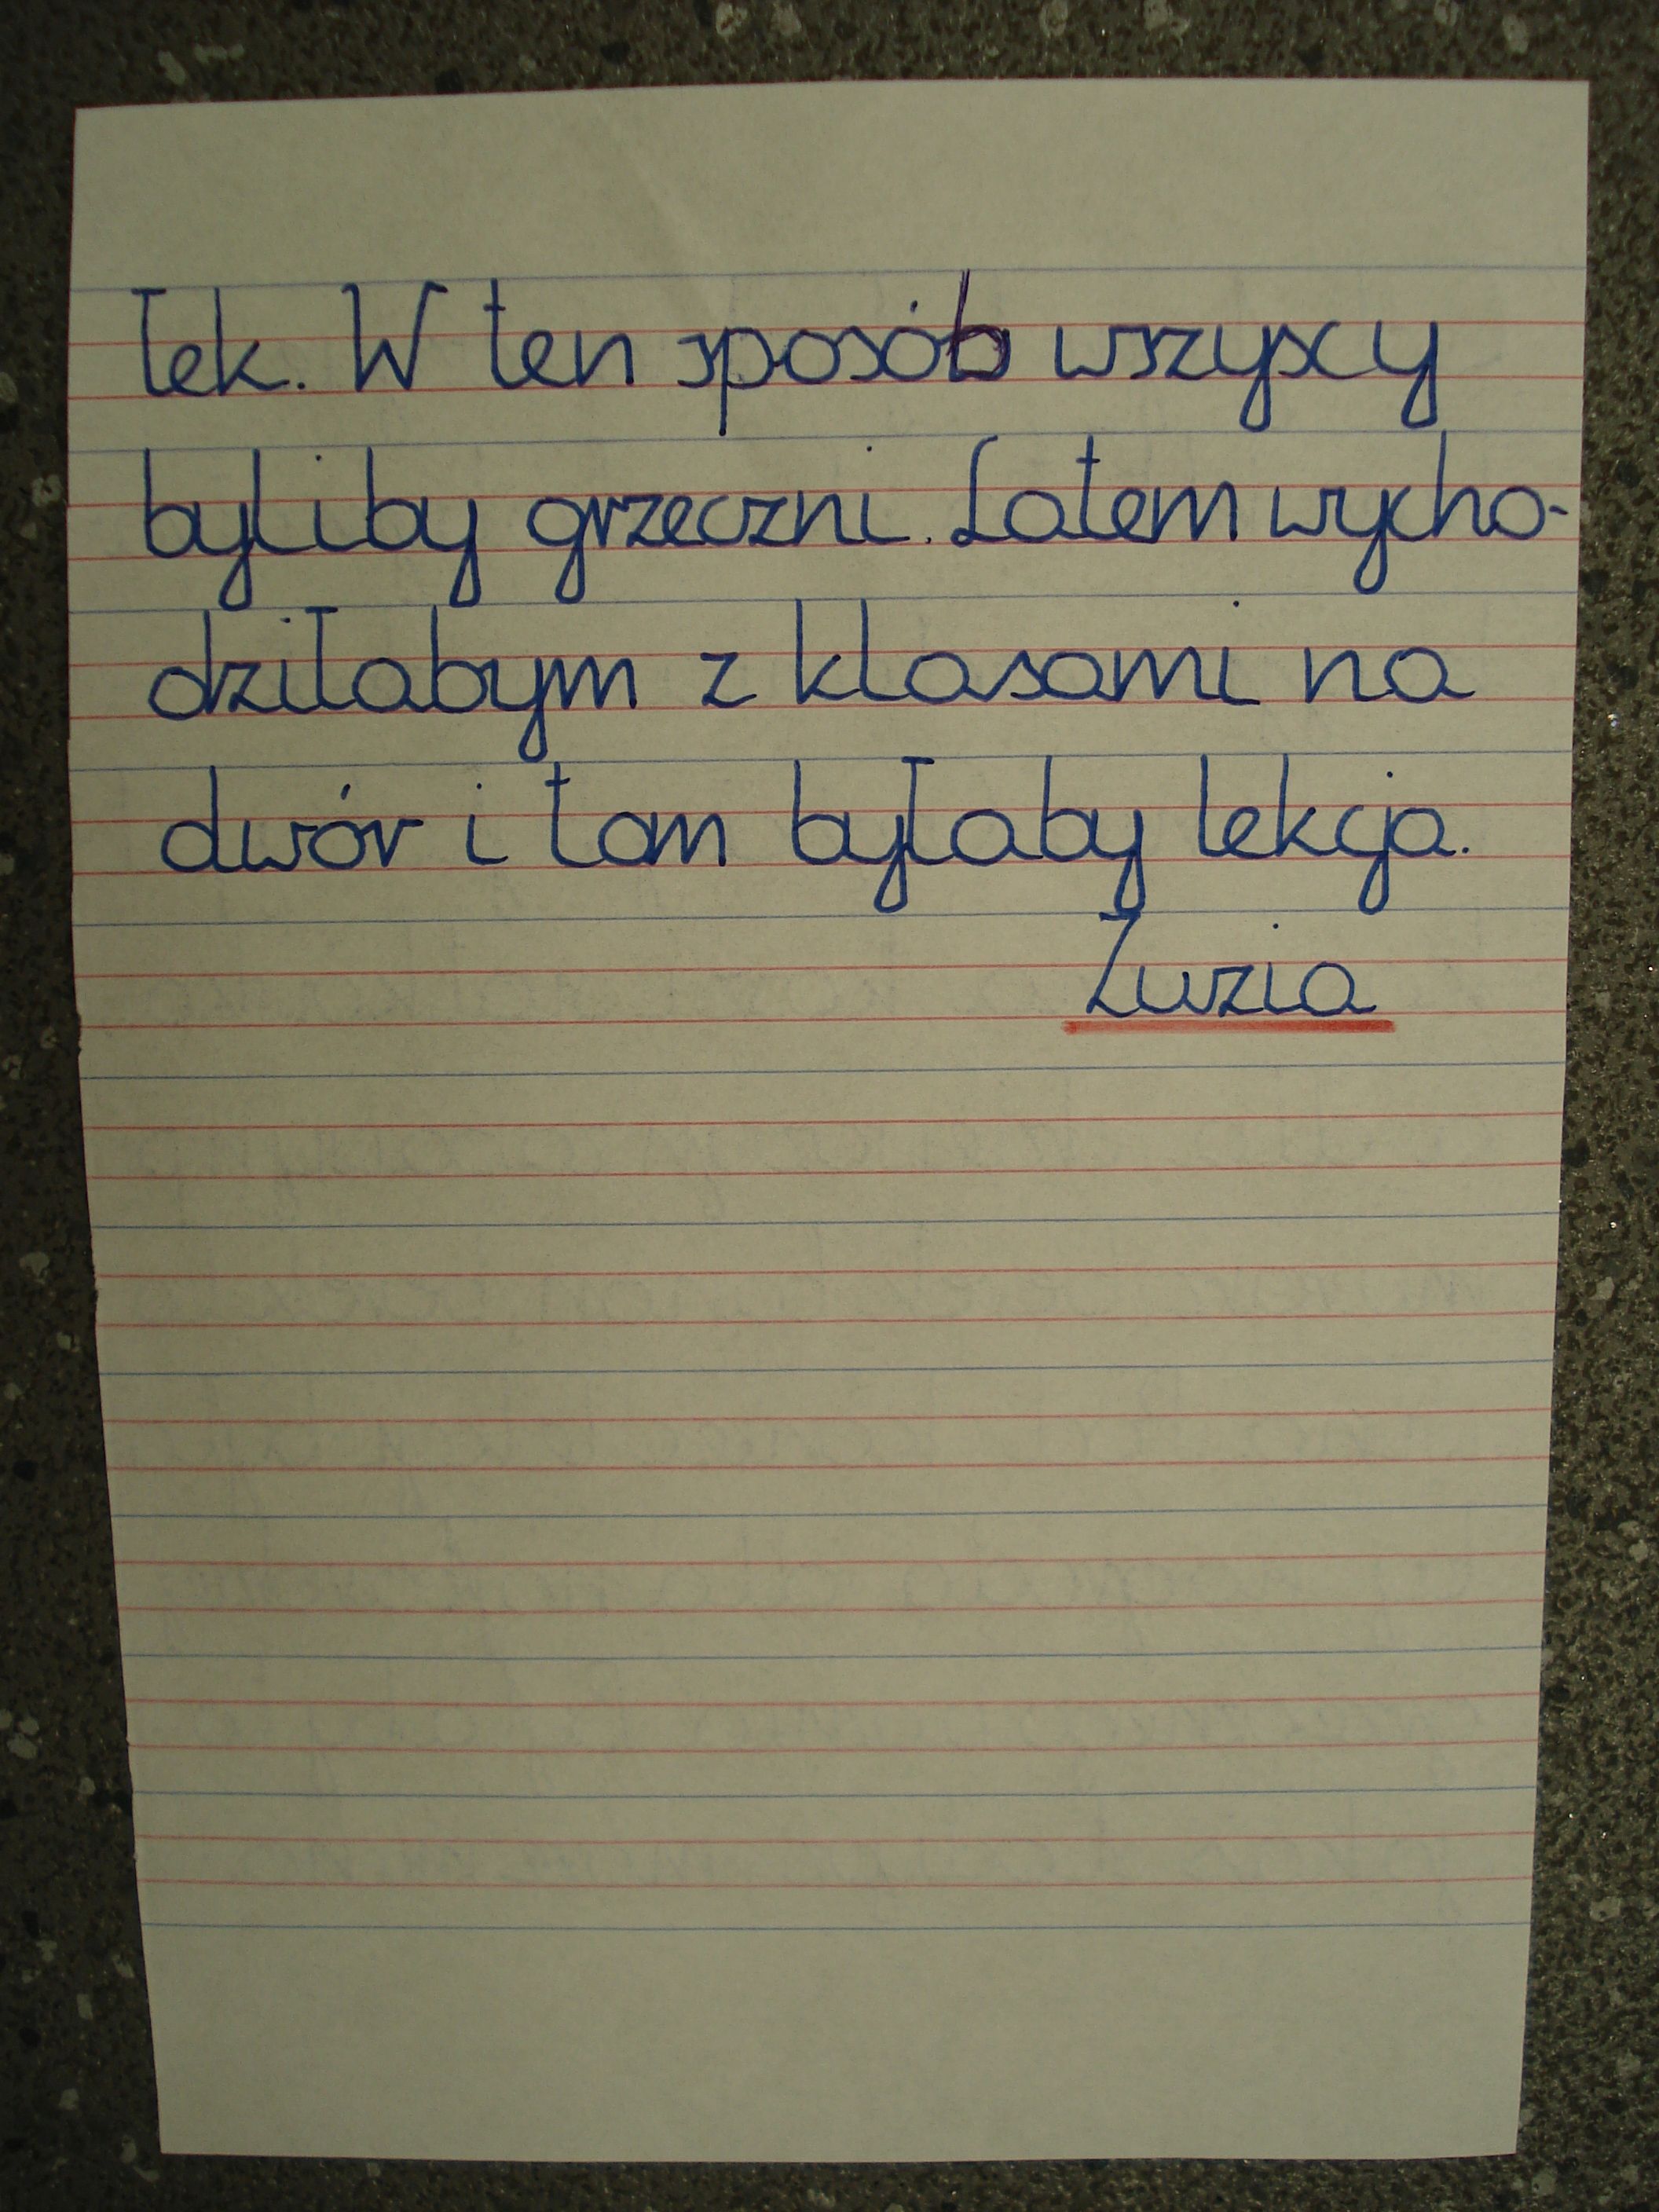 łek. W ten sposób wszyscy
byliby grzeczni. Latem wycho-
dziłabym z klasami na
dwór i tam byłaby lekcja.
Zuzia